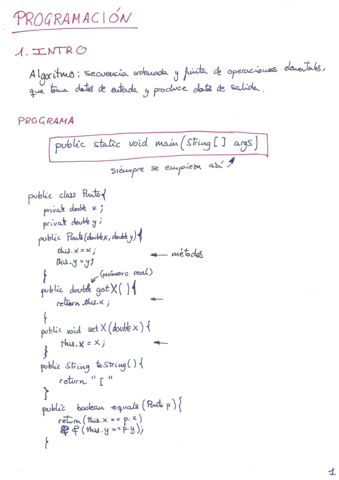 PROGRAMACIÓN
1. INTRO
Algoritmo: secuencia ordenada y finita de operaciones elementales,
que toma datos de entrada y produce datos de salida.
PROGRAMA
public static void main(String[] args)
siempre se empieza así
public class Punto{
private double x;
private double y;
public Punto(double x, double y){
this.x = x;
this.y = y;
← métodos
}
(número real)
public double getX(){
return this.x;
←
}
public void setX(double x){
this.x = x;
←
}
public String toString(){
return "["
}
public boolean equals(Punto p){
return (this.x == p.x)
&& (this.y == p.y);
}
1